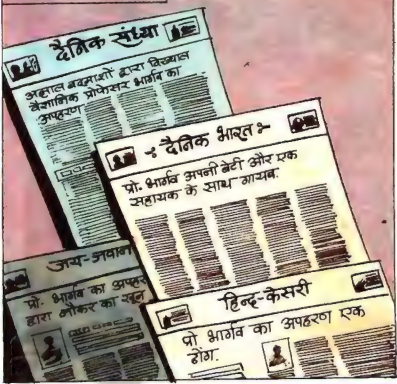 दैनिक संध्या
अज्ञात बदमाशों द्वारा विख्यात
वैज्ञानिक प्रोफेसर भार्गव का
अपहरण
-: दैनिक भारत :-
प्रो. भार्गव अपनी बेटी और एक
सहायक के साथ गायब.
जय-जवान
प्रो. भार्गव का अपहर
द्वारा नौकर का खून
हिन्द-केसरी
प्रो भार्गव का अपहरण एक
ढोंग.